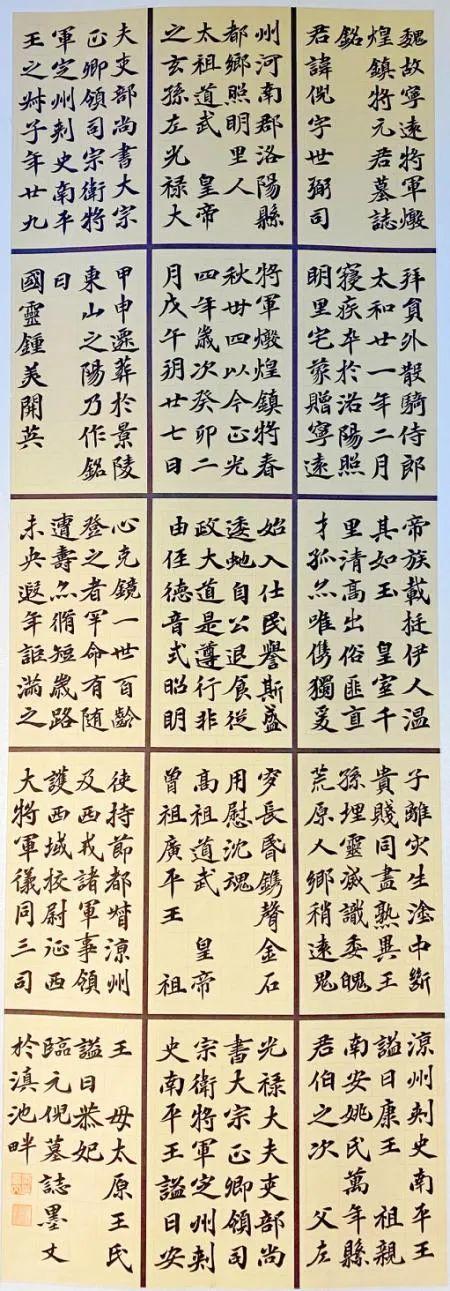 魏故寧遠將軍燉
煌鎮將元君墓誌
銘
君諱倪字世弼司
州河南郡洛陽縣
都鄉照明里人
太祖道武 皇帝
之玄孫左光祿大
夫吏部尚書大宗
正卿領司宗衛將
軍定州刺史南平
王之叔子年廿九
拜員外散騎侍郎
太和廿一年二月
寢疾卒於洛陽照
明里宅蒙贈寧遠
將軍燉煌鎮將春
秋卅四以今正光
四年歲次癸卯二
月戊午朔廿七日
甲申遷葬於景陵
東山之陽乃作銘
曰
國靈鍾美開英
帝族載挺伊人溫
其如玉 皇室千
里清高出俗匪直
才孤亦唯儁獨爰
始入仕民譽斯盛
逶虵自公退食從
政大道是遵行非
由徑德音式昭明
心克鏡一世百齡
登之者罕命有隨
遭壽亦脩短歲路
未央遐年詎滿之
子離灾生塗中斷
貴賤同盡孰異王
孫埋靈滅識委魄
荒原人鄉稍遠鬼
穸長昏鐫聲金石
用慰沈魂
高祖道武 皇帝
曾祖廣平王 祖
使持節都督涼州
及西戎諸軍事領
護西域校尉征西
大將軍儀同三司
涼州刺史南平王
謚曰康王 祖親
南安姚氏萬年縣
君伯之次 父左
光祿大夫吏部尚
書大宗正卿領司
宗衛將軍定州刺
史南平王謚曰安
王 母太原王氏
謚曰恭妃
臨元倪墓誌墨丈
於滇池畔